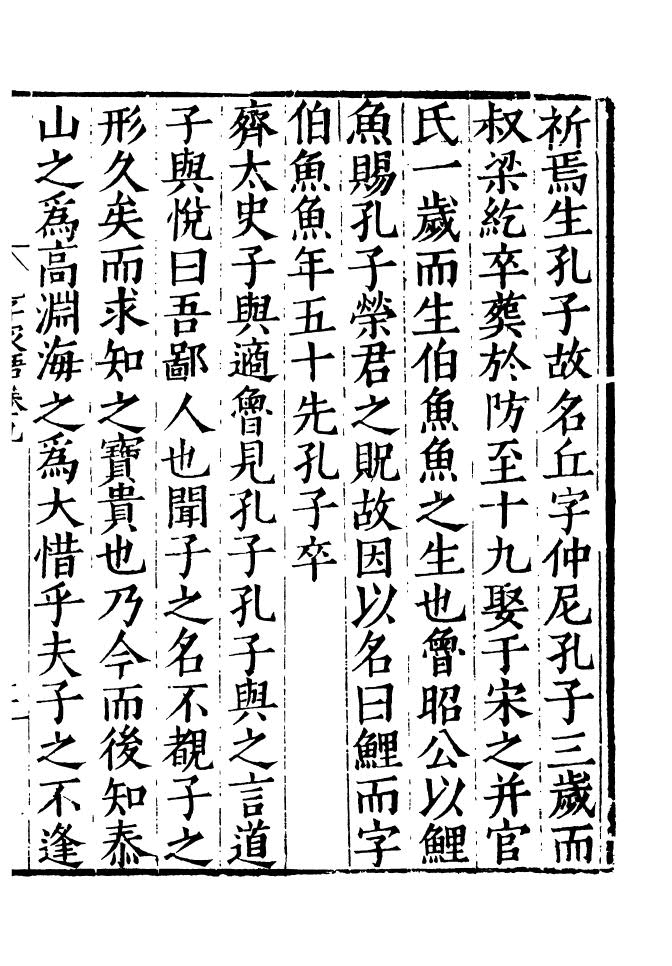 祈焉生孔子故名丘字仲尼孔子三歲而
叔梁紇卒葬於防至十九娶于宋之并官
氏一歲而生伯魚魚之生也魯昭公以鯉
魚賜孔子榮君之貺故因以名曰鯉而字
伯魚魚年五十先孔子卒
齊太史子與適魯見孔子孔子與之言道
子與悅曰吾鄙人也聞子之名不覩子之
形久矣而求知之寶貴也乃今而後知泰
山之爲高淵海之爲大惜乎夫子之不逢